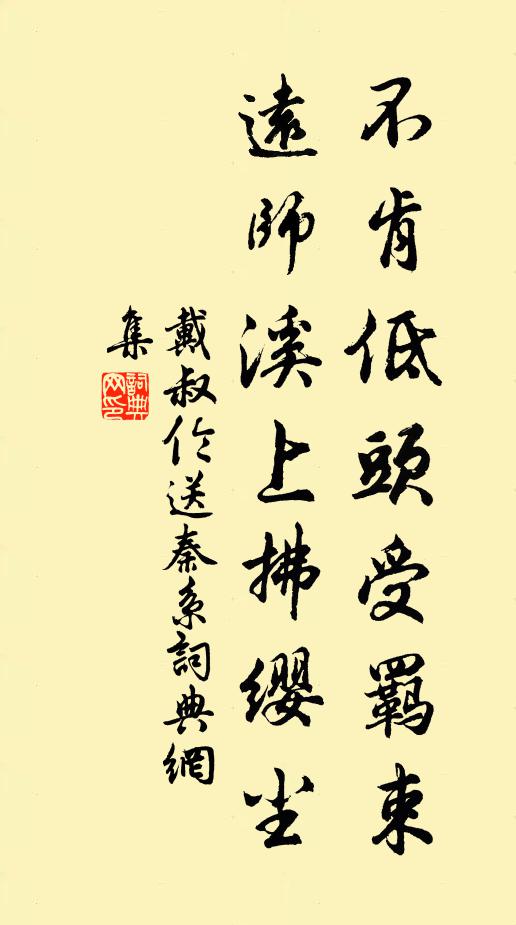 不肯低頭受羈束
遠師溪上拂纓尘
戴叔伦送秦系詞典網
集
詞典
网印